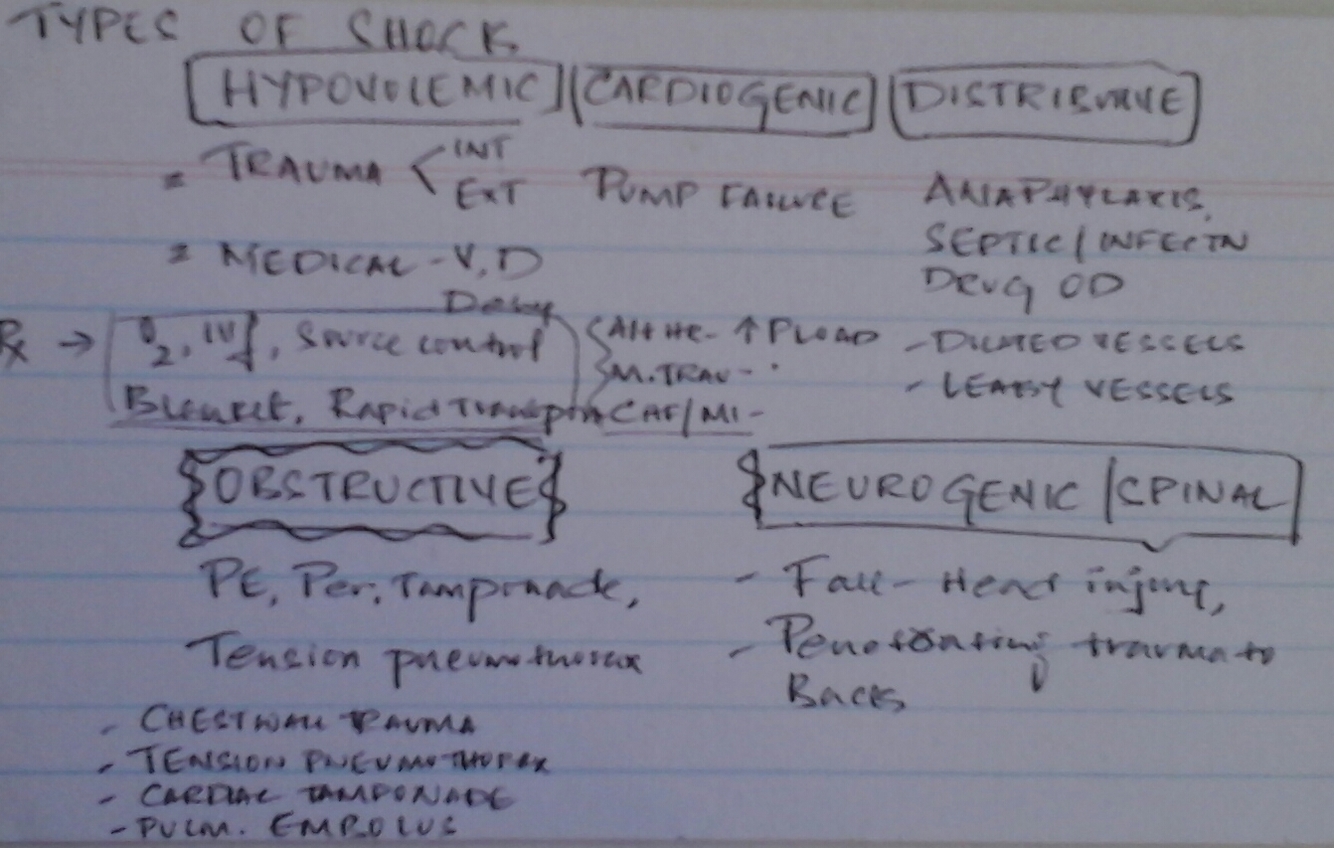 TYPES OF SHOCK
HYPOVOLEMIC CARDIOGENIC DISTRIBUTIVE
= TRAUMA < INT EXT PUMP FAILURE ANAPHYLAXIS,
= MEDICAL - V, D SEPTIC / INFECTN
DRUG OD
Rx → O2, IVF, Source control ↑ PLOAD - DILATED VESSELS
Blanket, Rapid Transport CHF/MI - - LEAKY VESSELS
OBSTRUCTIVE NEUROGENIC / SPINAL
PE, Per. Tamponade, - Fall - Head injury,
Tension pneumothorax - Penetrating trauma to
Back
- CHESTWALL TRAUMA
- TENSION PNEUMOTHORAX
- CARDIAC TAMPONADE
- PULM. EMBOLUS